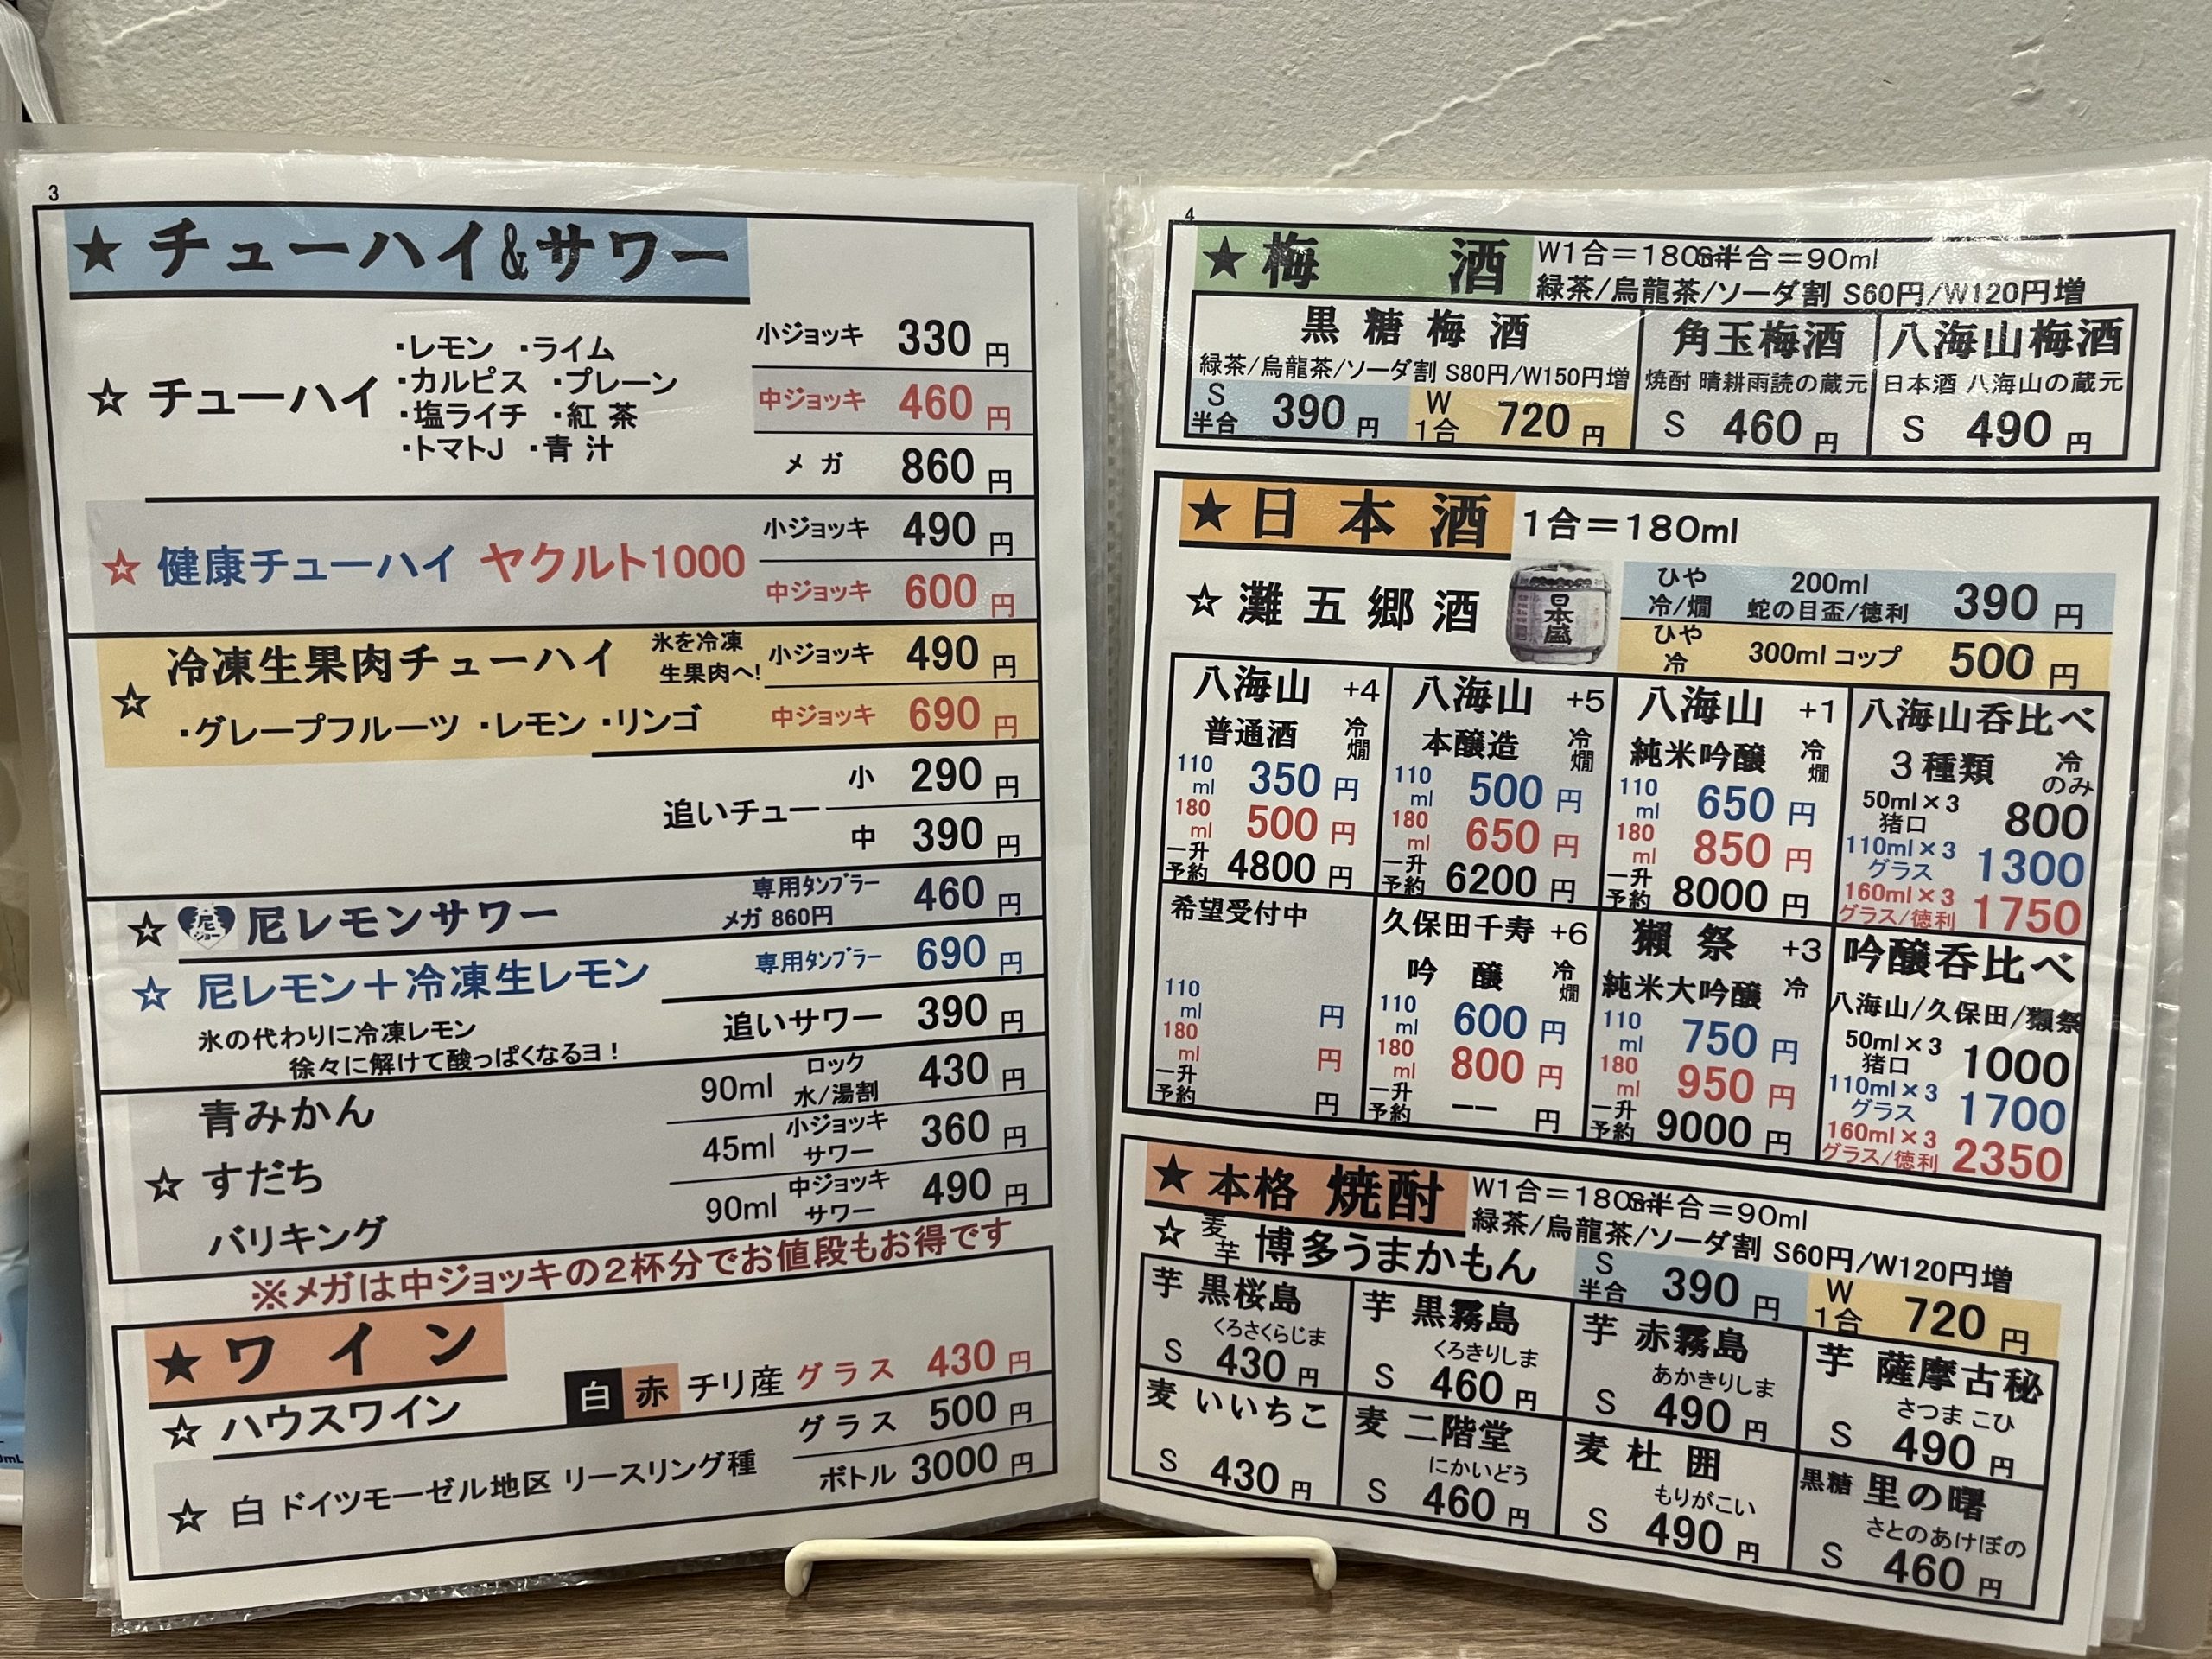 3
★チューハイ&サワー
☆チューハイ
・レモン ・ライム
・カルピス ・プレーン
・塩ライチ ・紅茶
・トマトJ ・青汁
小ジョッキ 330円
中ジョッキ 460円
メガ 860円
☆健康チューハイ ヤクルト1000
小ジョッキ 490円
中ジョッキ 600円
☆冷凍生果肉チューハイ
氷を冷凍
生果肉へ!
・グレープフルーツ ・レモン ・リンゴ
小ジョッキ 490円
中ジョッキ 690円
追いチュー
小 290円
中 390円
☆尼レモンサワー
専用タンブラー 460円
メガ 860円
☆尼レモン+冷凍生レモン
専用タンブラー 690円
氷の代わりに冷凍レモン
徐々に解けて酸っぱくなるヨ!
追いサワー 390円
青みかん
☆すだち
バリキング
90ml ロック 水/湯割 430円
45ml 小ジョッキ サワー 360円
90ml 中ジョッキ サワー 490円
※メガは中ジョッキの2杯分でお値段もお得です
★ワイン
☆ハウスワイン 白 赤 チリ産 グラス 430円
☆白 ドイツモーゼル地区 リースリング種
グラス 500円
ボトル 3000円
4
★梅酒
W1合=180ml S半合=90ml
緑茶/烏龍茶/ソーダ割 S60円/W120円増
黒糖梅酒
緑茶/烏龍茶/ソーダ割 S80円/W150円増
S半合 390円 W1合 720円
角玉梅酒
焼酎 晴耕雨読の蔵元
S 460円
八海山梅酒
日本酒 八海山の蔵元
S 490円
★日本酒 1合=180ml
☆灘五郷酒
日本盛
ひや 冷/燗 200ml 蛇の目盃/徳利 390円
ひや 冷 300ml コップ 500円
八海山 +4
普通酒 冷燗
110ml 350円
180ml 500円
一升予約 4800円
八海山 +5
本醸造 冷燗
110ml 500円
180ml 650円
一升予約 6200円
八海山 +1
純米吟醸 冷燗
110ml 650円
180ml 850円
一升予約 8000円
八海山呑比べ
3種類 冷のみ
50ml×3 猪口 800
110ml×3 グラス 1300
160ml×3 グラス/徳利 1750
希望受付中
110ml 円
180ml 円
一升予約 円
久保田千寿 +6
吟醸 冷燗
110ml 600円
180ml 800円
一升予約 ーー 円
獺祭 +3
純米大吟醸 冷
110ml 750円
180ml 950円
一升予約 9000円
吟醸呑比べ
八海山/久保田/獺祭
50ml×3 猪口 1000
110ml×3 グラス 1700
160ml×3 グラス/徳利 2350
★本格焼酎
W1合=180ml S半合=90ml
緑茶/烏龍茶/ソーダ割 S60円/W120円増
☆麦芋 博多うまかもん
S半合 390円 W1合 720円
芋 黒桜島
くろさくらじま
S 430円
芋 黒霧島
くろきりしま
S 460円
芋 赤霧島
あかきりしま
S 490円
芋 薩摩古秘
さつま こひ
S 490円
麦 いいちこ
S 430円
麦 二階堂
にかいどう
S 460円
麦 杜囲
もりがこい
S 490円
黒糖 里の曙
さとのあけぼの
S 460円